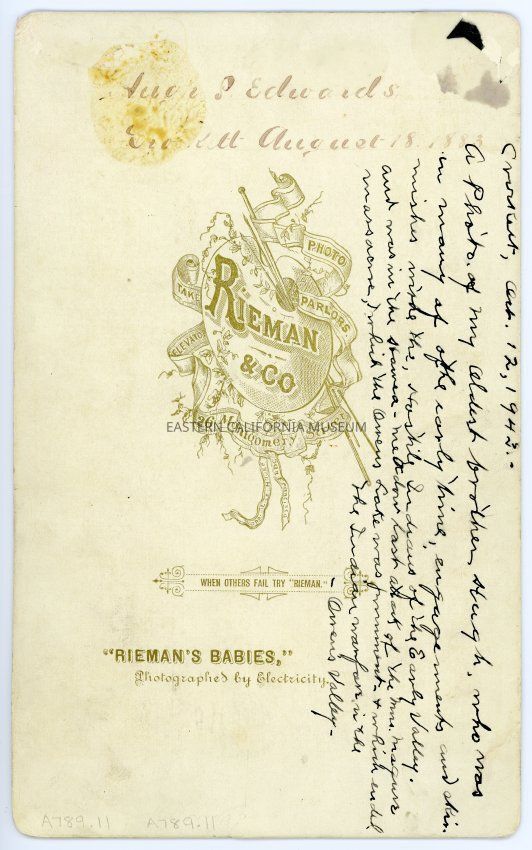 Hugh P Edwards
Crockett August 18. 1883
Crockett, Oct. 12, 1942.-
A Photo. of my oldest brother Hugh, who was
in many of the early time, engagements and skir-
mishes with the, Hostile Indians of the Early Valley.
and was in the Haiwea-Meadow last attack of the Mrs. Maguire
massacre, which the Owens Lake was prominent & which ended
the Indian warfare in the
Owens Valley-
TAKE ELEVATOR
PHOTO PARLORS
RIEMAN & CO
26 Montgomery Street
SAN FRANCISCO
EASTERN CALIFORNIA MUSEUM
WHEN OTHERS FAIL TRY "RIEMAN."
"RIEMAN'S BABIES,"
Photographed by Electricity.
A789.11 A789.11